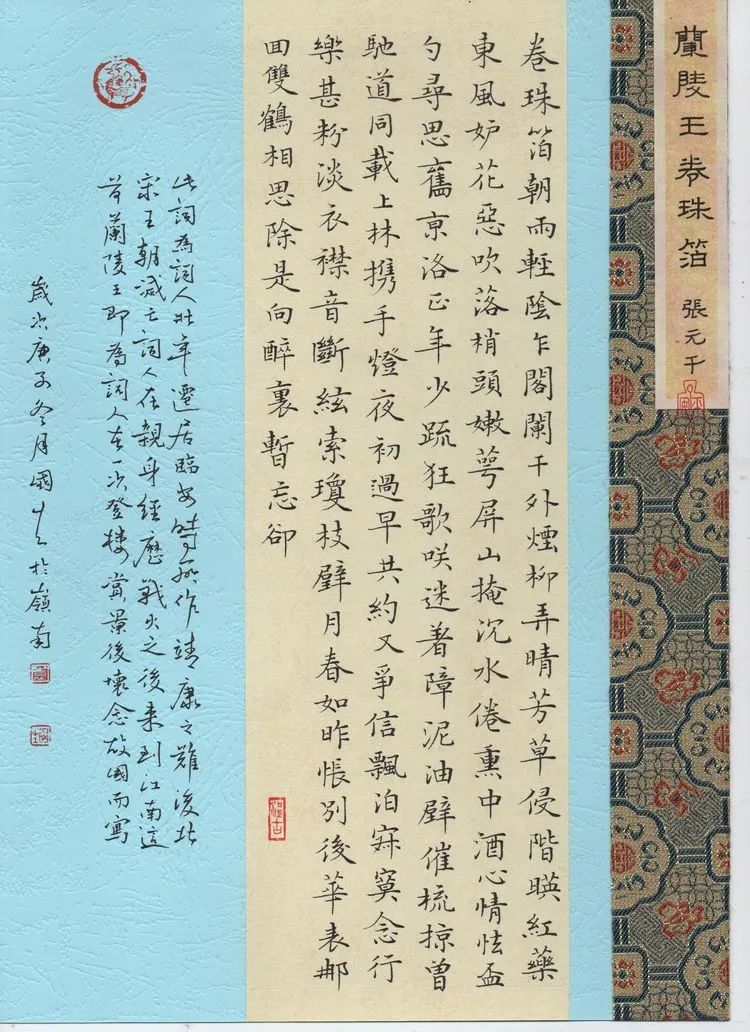 蘭陵王卷珠箔 張元千
卷珠箔朝雨輕陰乍閣闌干外煙柳弄晴芳草侵階暎紅藥
東風妒花惡吹落梢頭嫩萼屏山掩沉水倦熏中酒心情怯盃
勺尋思舊亰洛正年少踈狂歌咲迷著障泥油壁催梳掠曾
馳道同載上林携手燈夜初過早共約又爭信飄泊寂寞念行
樂甚粉淡衣襟音斷絃索瓊枝璧月春如昨悵別後華表那
囬雙鶴相思除是向醉裏暫忘卻
此詞為詞人壯年遷居臨安時所作靖康之難後北
宋王朝滅亡詞人在親身經歷戰火之後来到江南這
首蘭陵王即為詞人在一次登樓賞景後懷念故國而寫
歲次庚子冬月國於嶺南